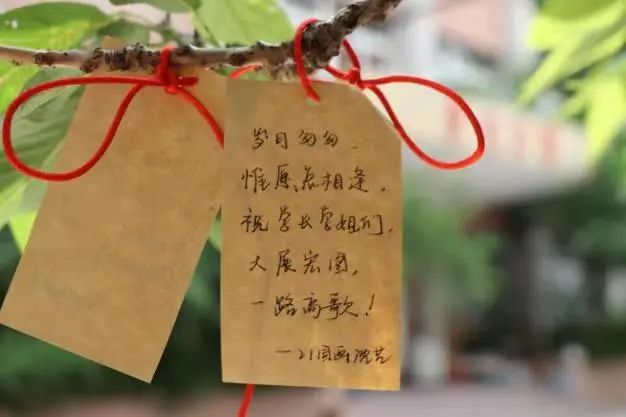 岁月匆匆，
惟愿总相逢。
祝学长学姐们，
大展宏图，
一路高歌！
—21国画